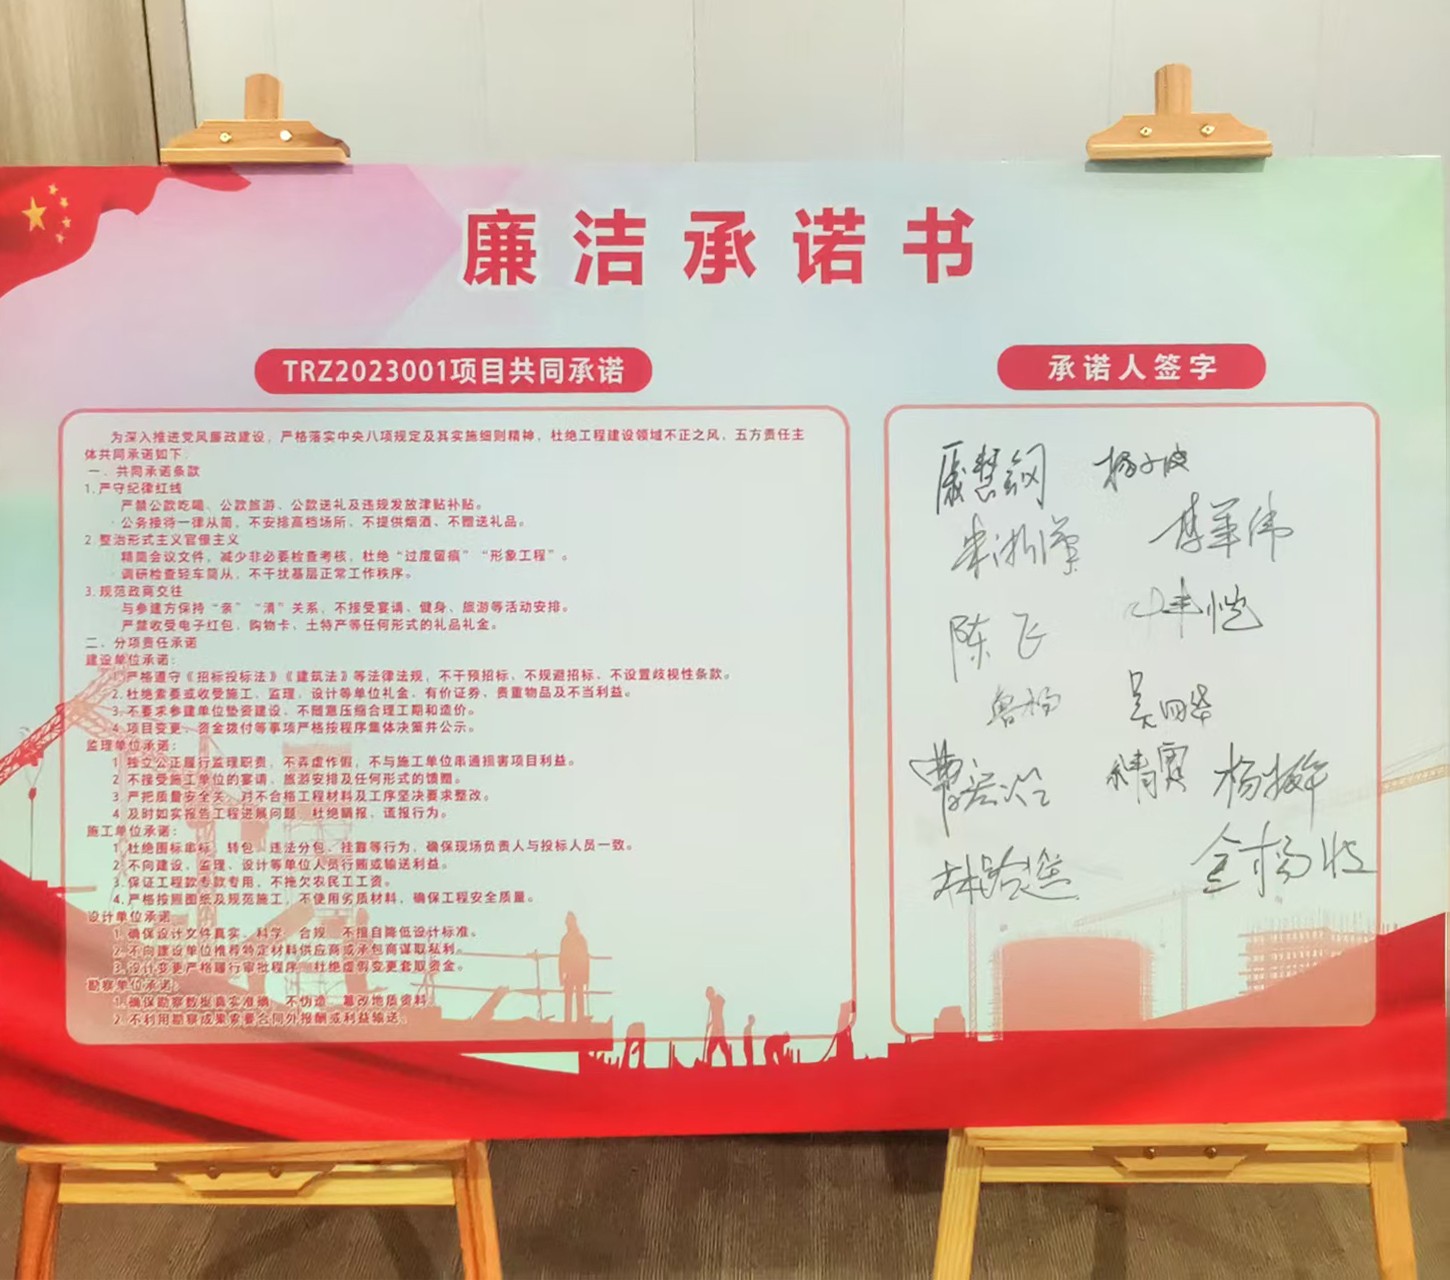 廉洁承诺书
TRZ2023001项目共同承诺
为深入推进党风廉政建设，严格落实中央八项规定及其实施细则精神，杜绝工程建设领域不正之风，五方责任主
体共同承诺如下：
一、共同承诺条款
1.严守纪律红线
严禁公款吃喝、公款旅游、公款送礼及违规发放津贴补贴。
·公务接待一律从简，不安排高档场所、不提供烟酒、不赠送礼品。
2.整治形式主义官僚主义
精简会议文件，减少非必要检查考核，杜绝“过度留痕”“形象工程”。
·调研检查轻车简从，不干扰基层正常工作秩序。
3.规范政商交往
·与参建方保持“亲”“清”关系，不接受宴请、健身、旅游等活动安排。
严禁收受电子红包、购物卡、土特产等任何形式的礼品礼金。
二、分项责任承诺
建设单位承诺：
1.严格遵守《招标投标法》《建筑法》等法律法规，不干预招标、不规避招标、不设置歧视性条款。
2.杜绝索要或收受施工、监理、设计等单位礼金、有价证券、贵重物品及不当利益。
3.不要求参建单位垫资建设、不随意压缩合理工期和造价。
4.项目变更、资金拨付等事项严格按程序集体决策并公示。
监理单位承诺：
1.独立公正履行监理职责，不弄虚作假，不与施工单位串通损害项目利益。
2.不接受施工单位的宴请、旅游安排及任何形式的馈赠。
3.严把质量安全关，对不合格工程材料及工序坚决要求整改。
4.及时如实报告工程进展问题，杜绝瞒报、谎报行为。
施工单位承诺：
1.杜绝围标串标、转包、违法分包、挂靠等行为，确保现场负责人与投标人员一致。
2.不向建设、监理、设计等单位人员行贿或输送利益。
3.保证工程款专款专用，不拖欠农民工工资。
4.严格按照图纸及规范施工，不使用劣质材料，确保工程安全质量。
设计单位承诺：
1.确保设计文件真实、科学、合规，不擅自降低设计标准。
2.不向建设单位推荐特定材料供应商或承包商谋取私利。
3.设计变更严格履行审批程序，杜绝虚假变更套取资金。
勘察单位承诺：
1.确保勘察数据真实准确，不伪造、篡改地质资料。
2.不利用勘察成果索要合同外报酬或利益输送。
承诺人签字
陈飞
鲁杨
吴四华